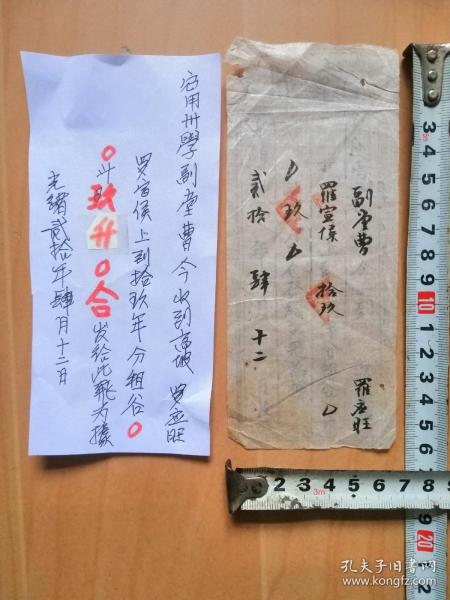 定用卅學副堂曹今收到高坡 罗应旺
罗宣侯上到拾玖年分租谷〇
〇斗玖升〇合 发给此飛为據
光緒贰拾年肆月十二日
副堂曹 羅应旺
羅宣侯 拾玖
玖
貳拾 肆 十二
3m
2 3 4 5 6 7 8 9
3 4 5 6 7 8 9 10 1 2 3 4 5 6 7 8 9 20 1 2
孔夫子旧书网
www.kongfz.com